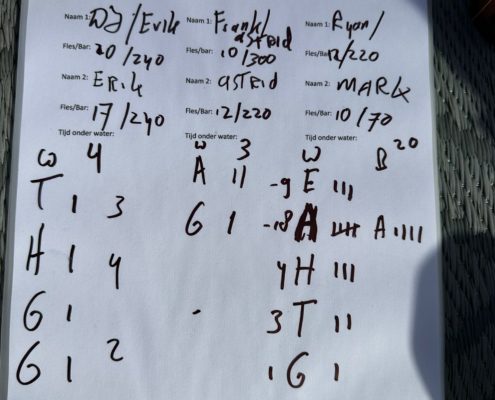 Naam 1: DJ/Erik Naam 1: Frank/astrid Naam 1: Ryan/
Fles/Bar: 20/240 Fles/Bar: 10/300 Fles/Bar: 12/220
Naam 2: Erik Naam 2: astrid Naam 2: MARK
Fles/Bar: 17/240 Fles/Bar: 12/220 Fles/Bar: 10/70
Tijd onder water: Tijd onder water: Tijd onder water:
W 4 W 3 W B 20
T 1 3 A 11 -9 E 111
H 1 4 G 1 -18 A A 1111
G 1 4 H 111
G 1 2 3 T 11
1 G 1